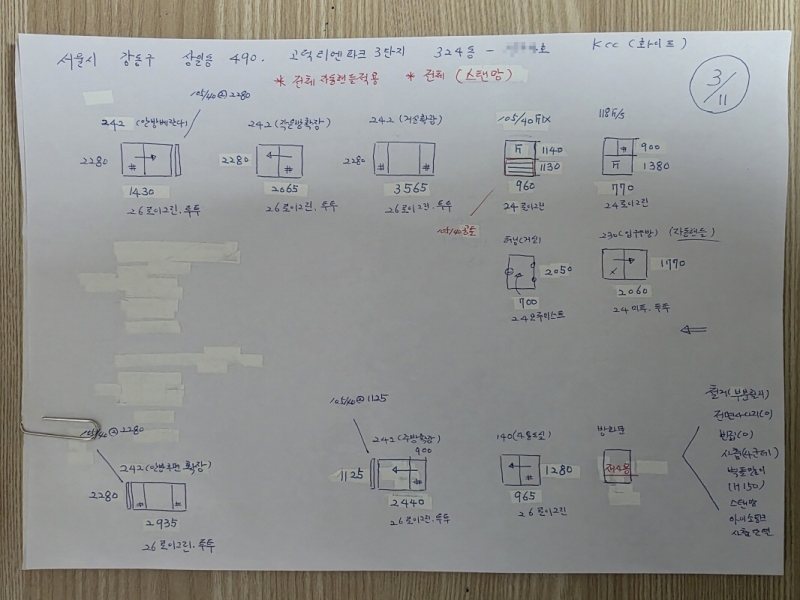 서울시 강동구 상일동 490. 고덕리엔파크 3단지 324동 - 호 KCC (화이트)
* 전체 자동핸들적용 * 전체 (스텐망)
3/11
105/40@2280
242 (안방베란다)
2280
1430
26 로이그린. 투투
242 (작은방확장)
2280
2065
26 로이그린. 투투
242 (거실확장)
2280
3565
26 로이그린. 투투
105/40 FIX
1140
1130
960
24 로이그린
105/40공틀
118 F/S
900
1380
770
24 로이그린
터닝 (거실)
2050
700
24
230 (입구방) (자동핸들)
1770
2060
24 미투. 투투
105/40@2280
242 (안방후면 확장)
2280
2935
26 로이그린. 투투
105/40@1125
242 (주방확장)
900
1125
2440
26 로이그린. 투투
140 (다용도실)
1280
965
26 로이그린
방화문
철거 (부분철거)
전면사다리(0)
(H150)
스텐망